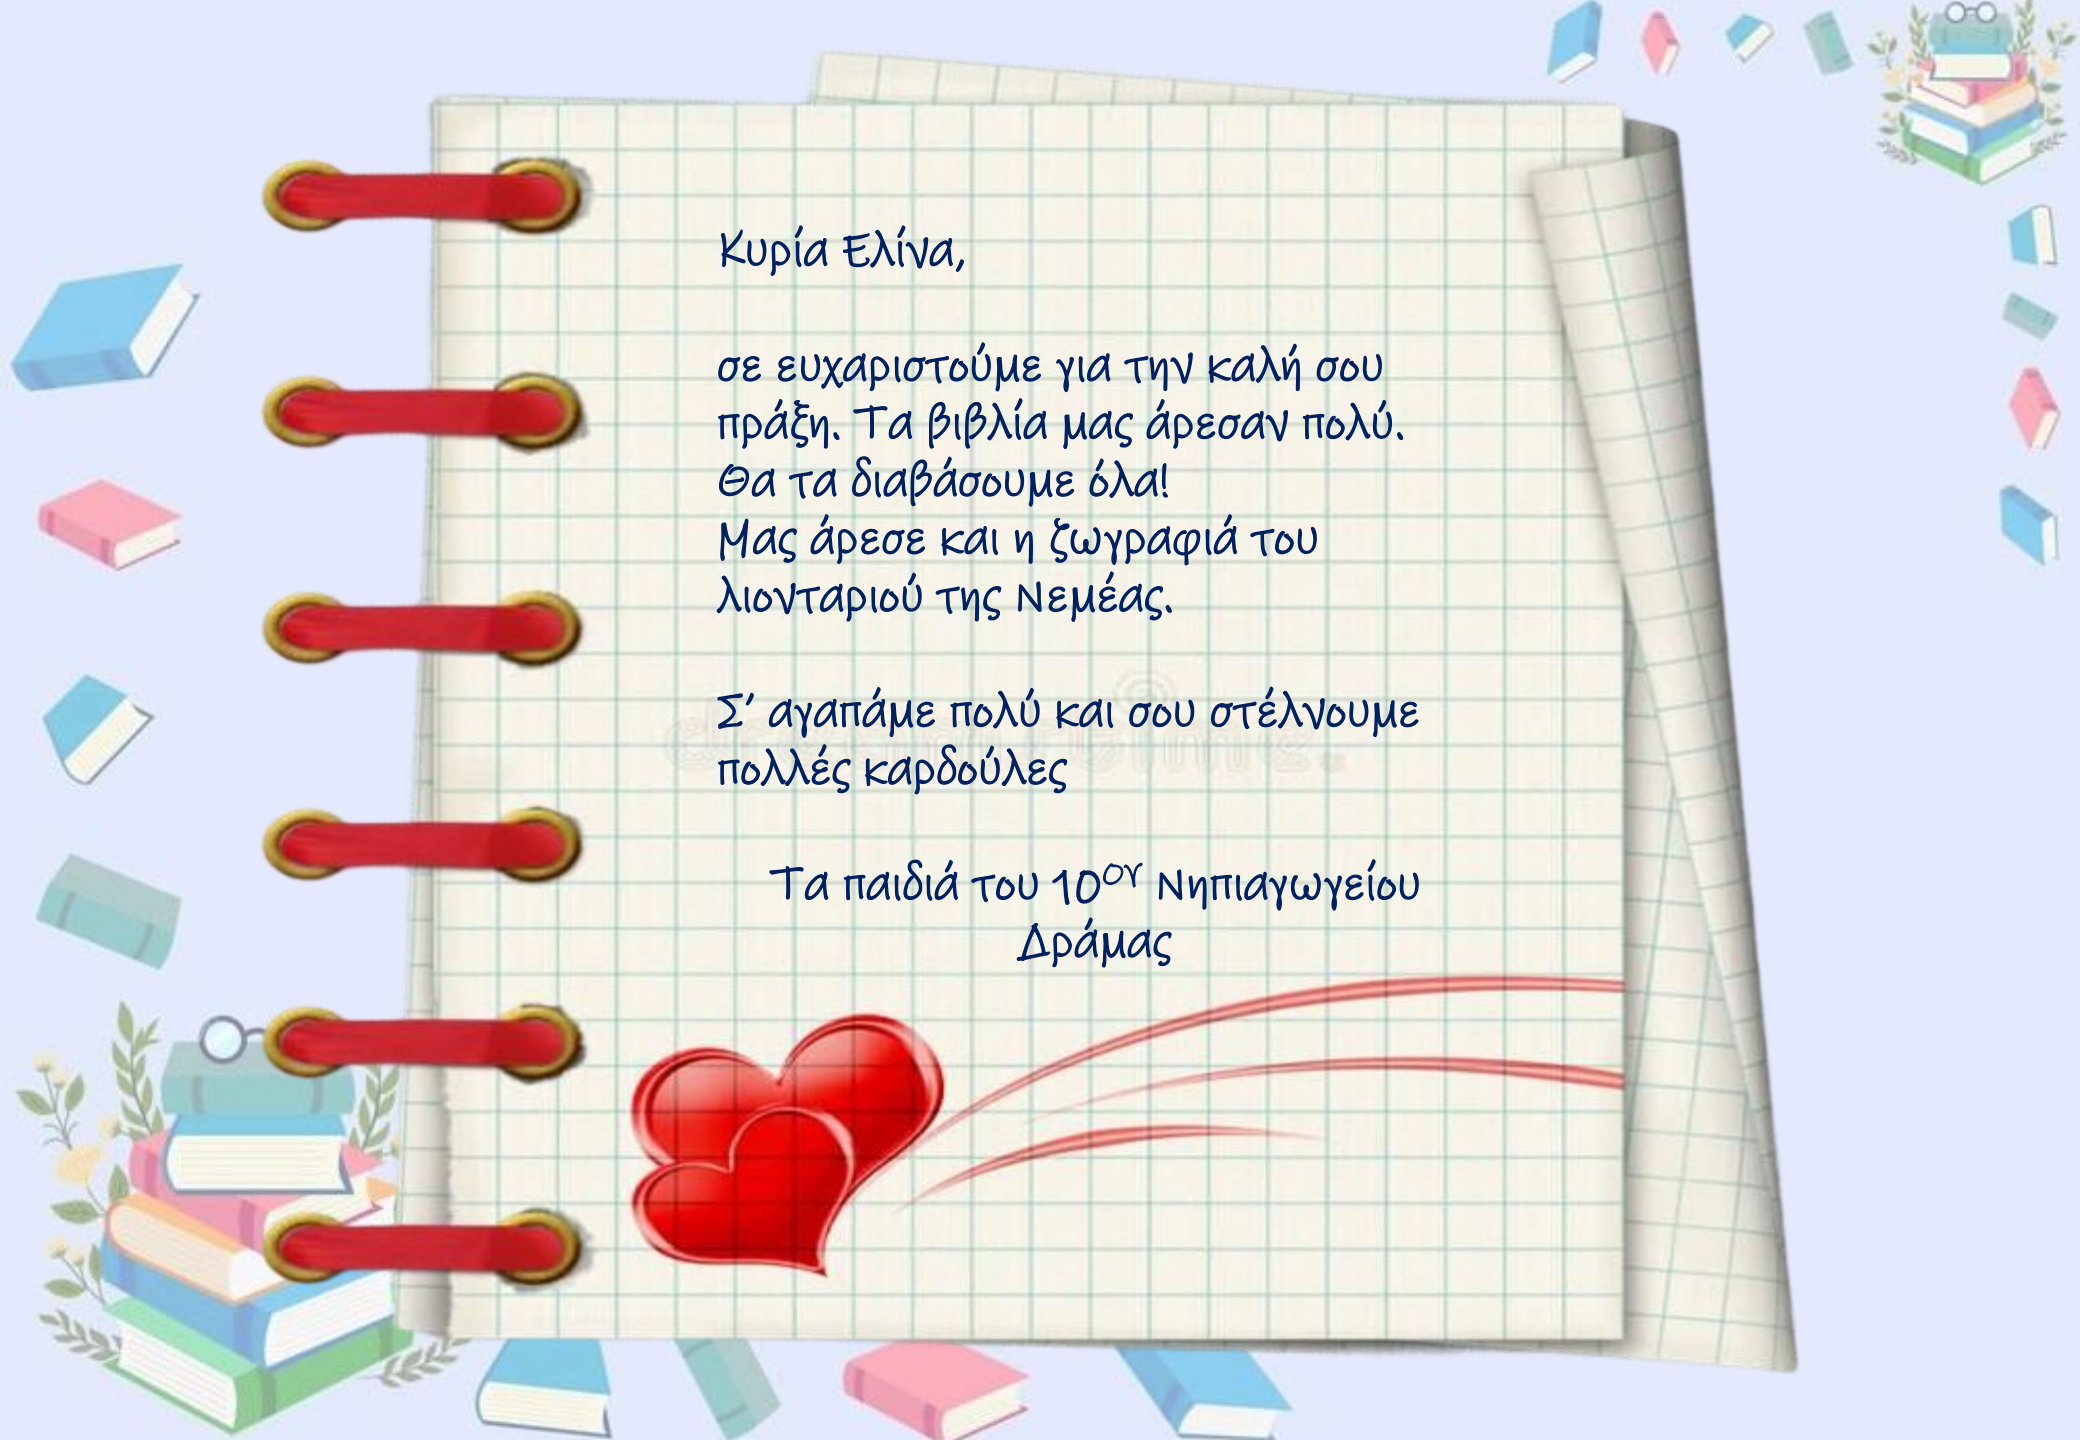 Κυρία Ελίνα,
σε ευχαριστούμε για την καλή σου
πράξη. Τα βιβλία μας άρεσαν πολύ.
Θα τα διαβάσουμε όλα!
Μας άρεσε και η ζωγραφιά του
λιονταριού της Νεμέας.
Σ' αγαπάμε πολύ και σου στέλνουμε
πολλές καρδούλες
Τα παιδιά του 10ου Νηπιαγωγείου
Δράμας